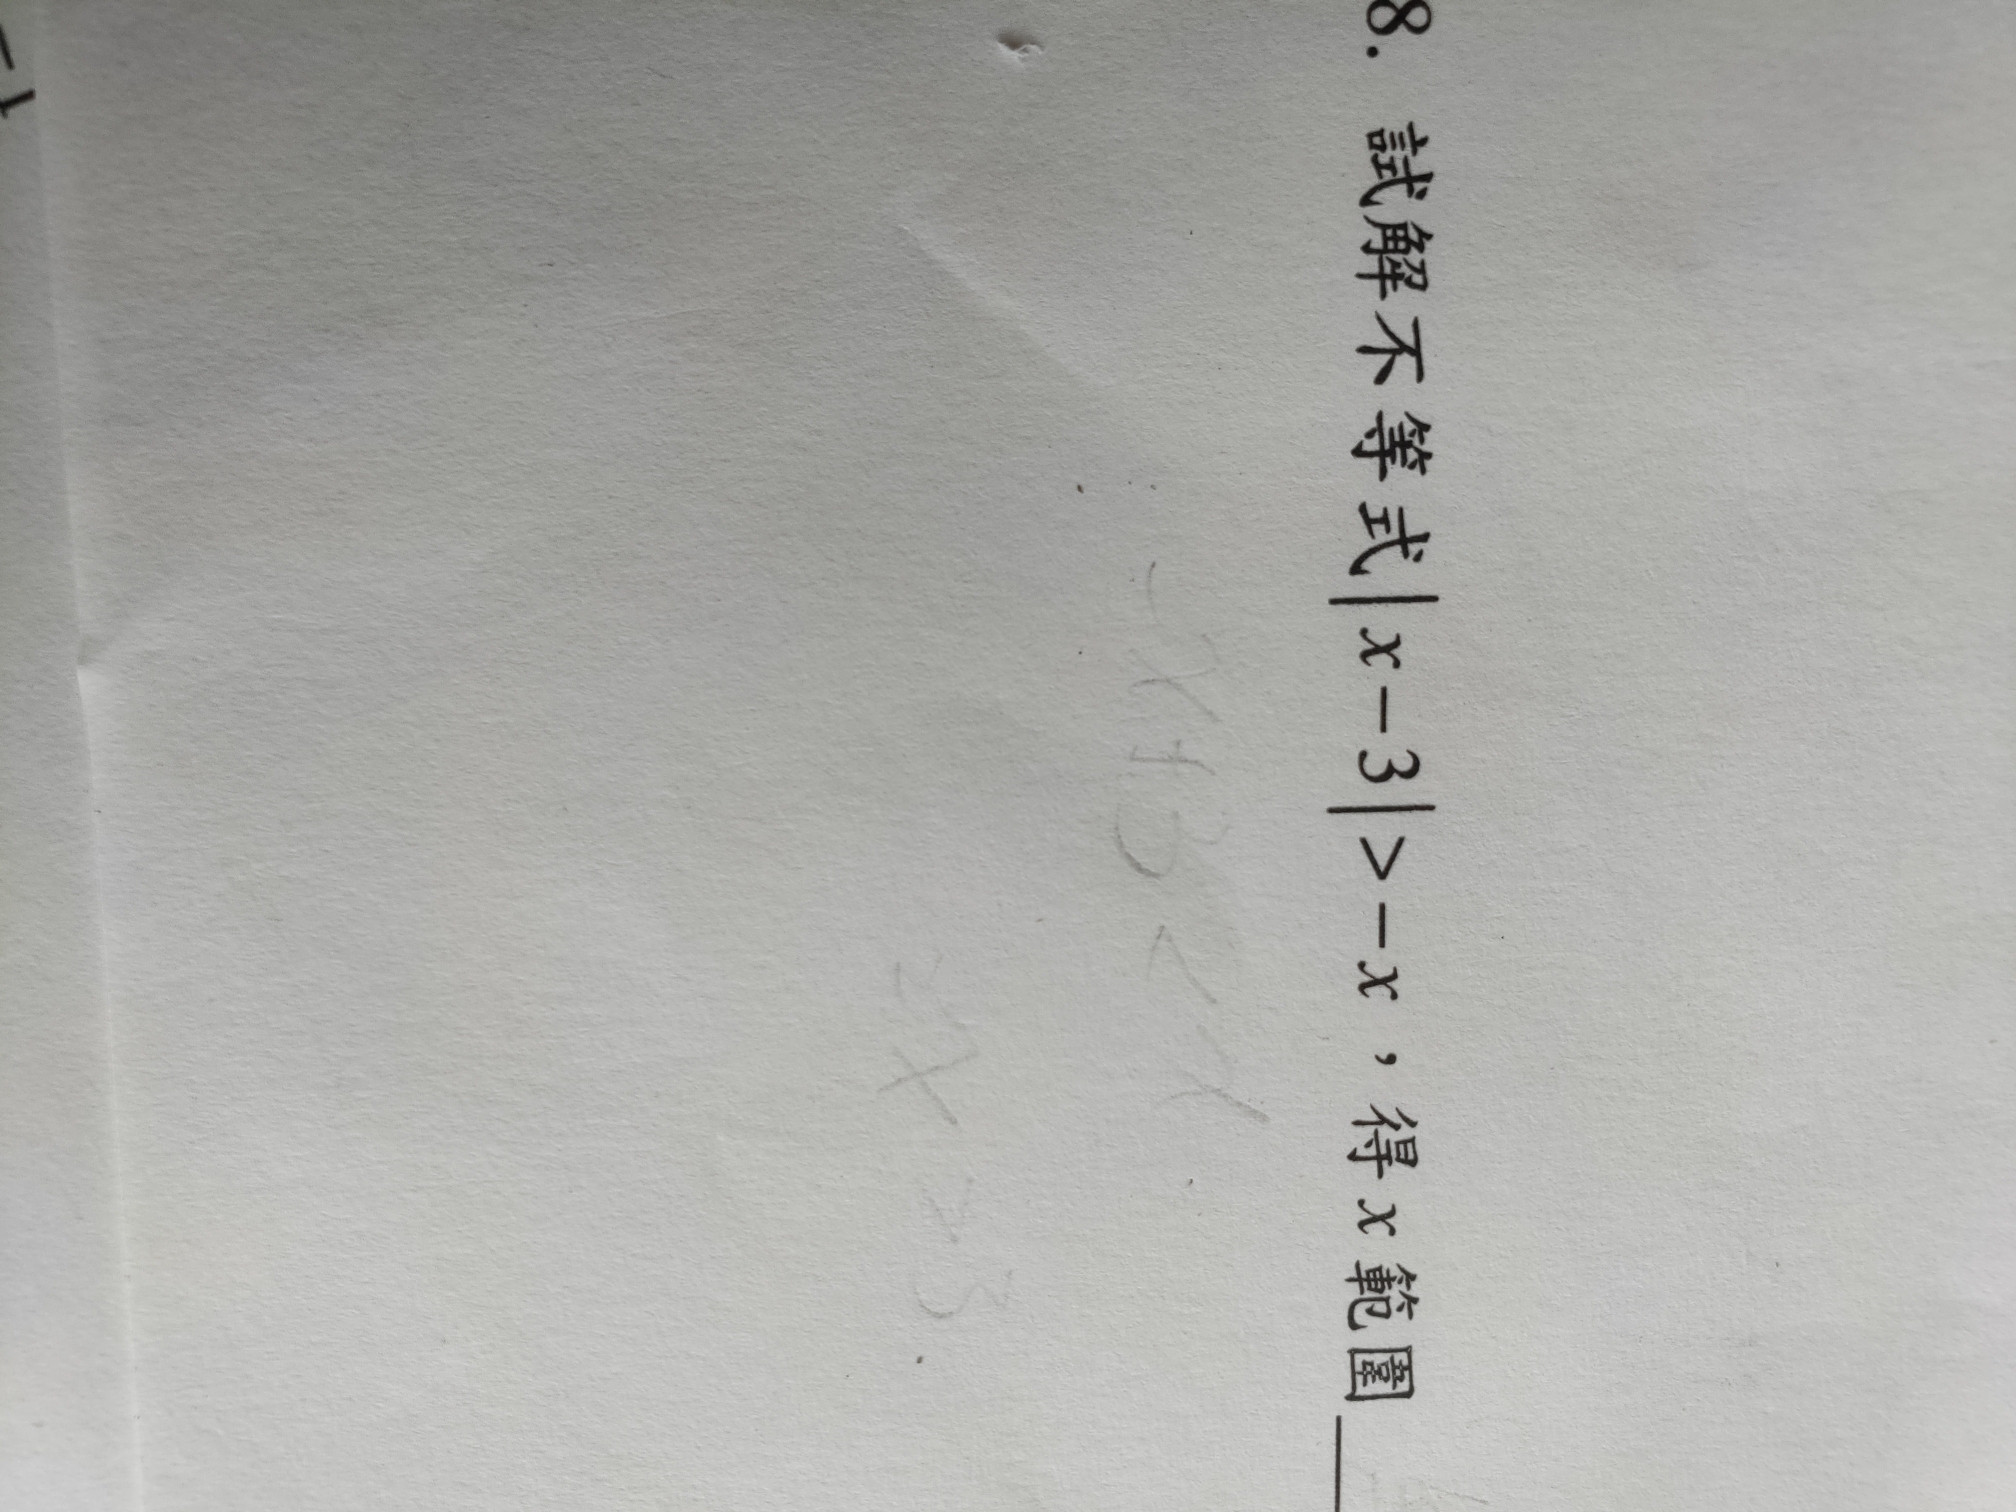 8. 試解不等式|x-3|>-x，得x範圍
-x+3<x